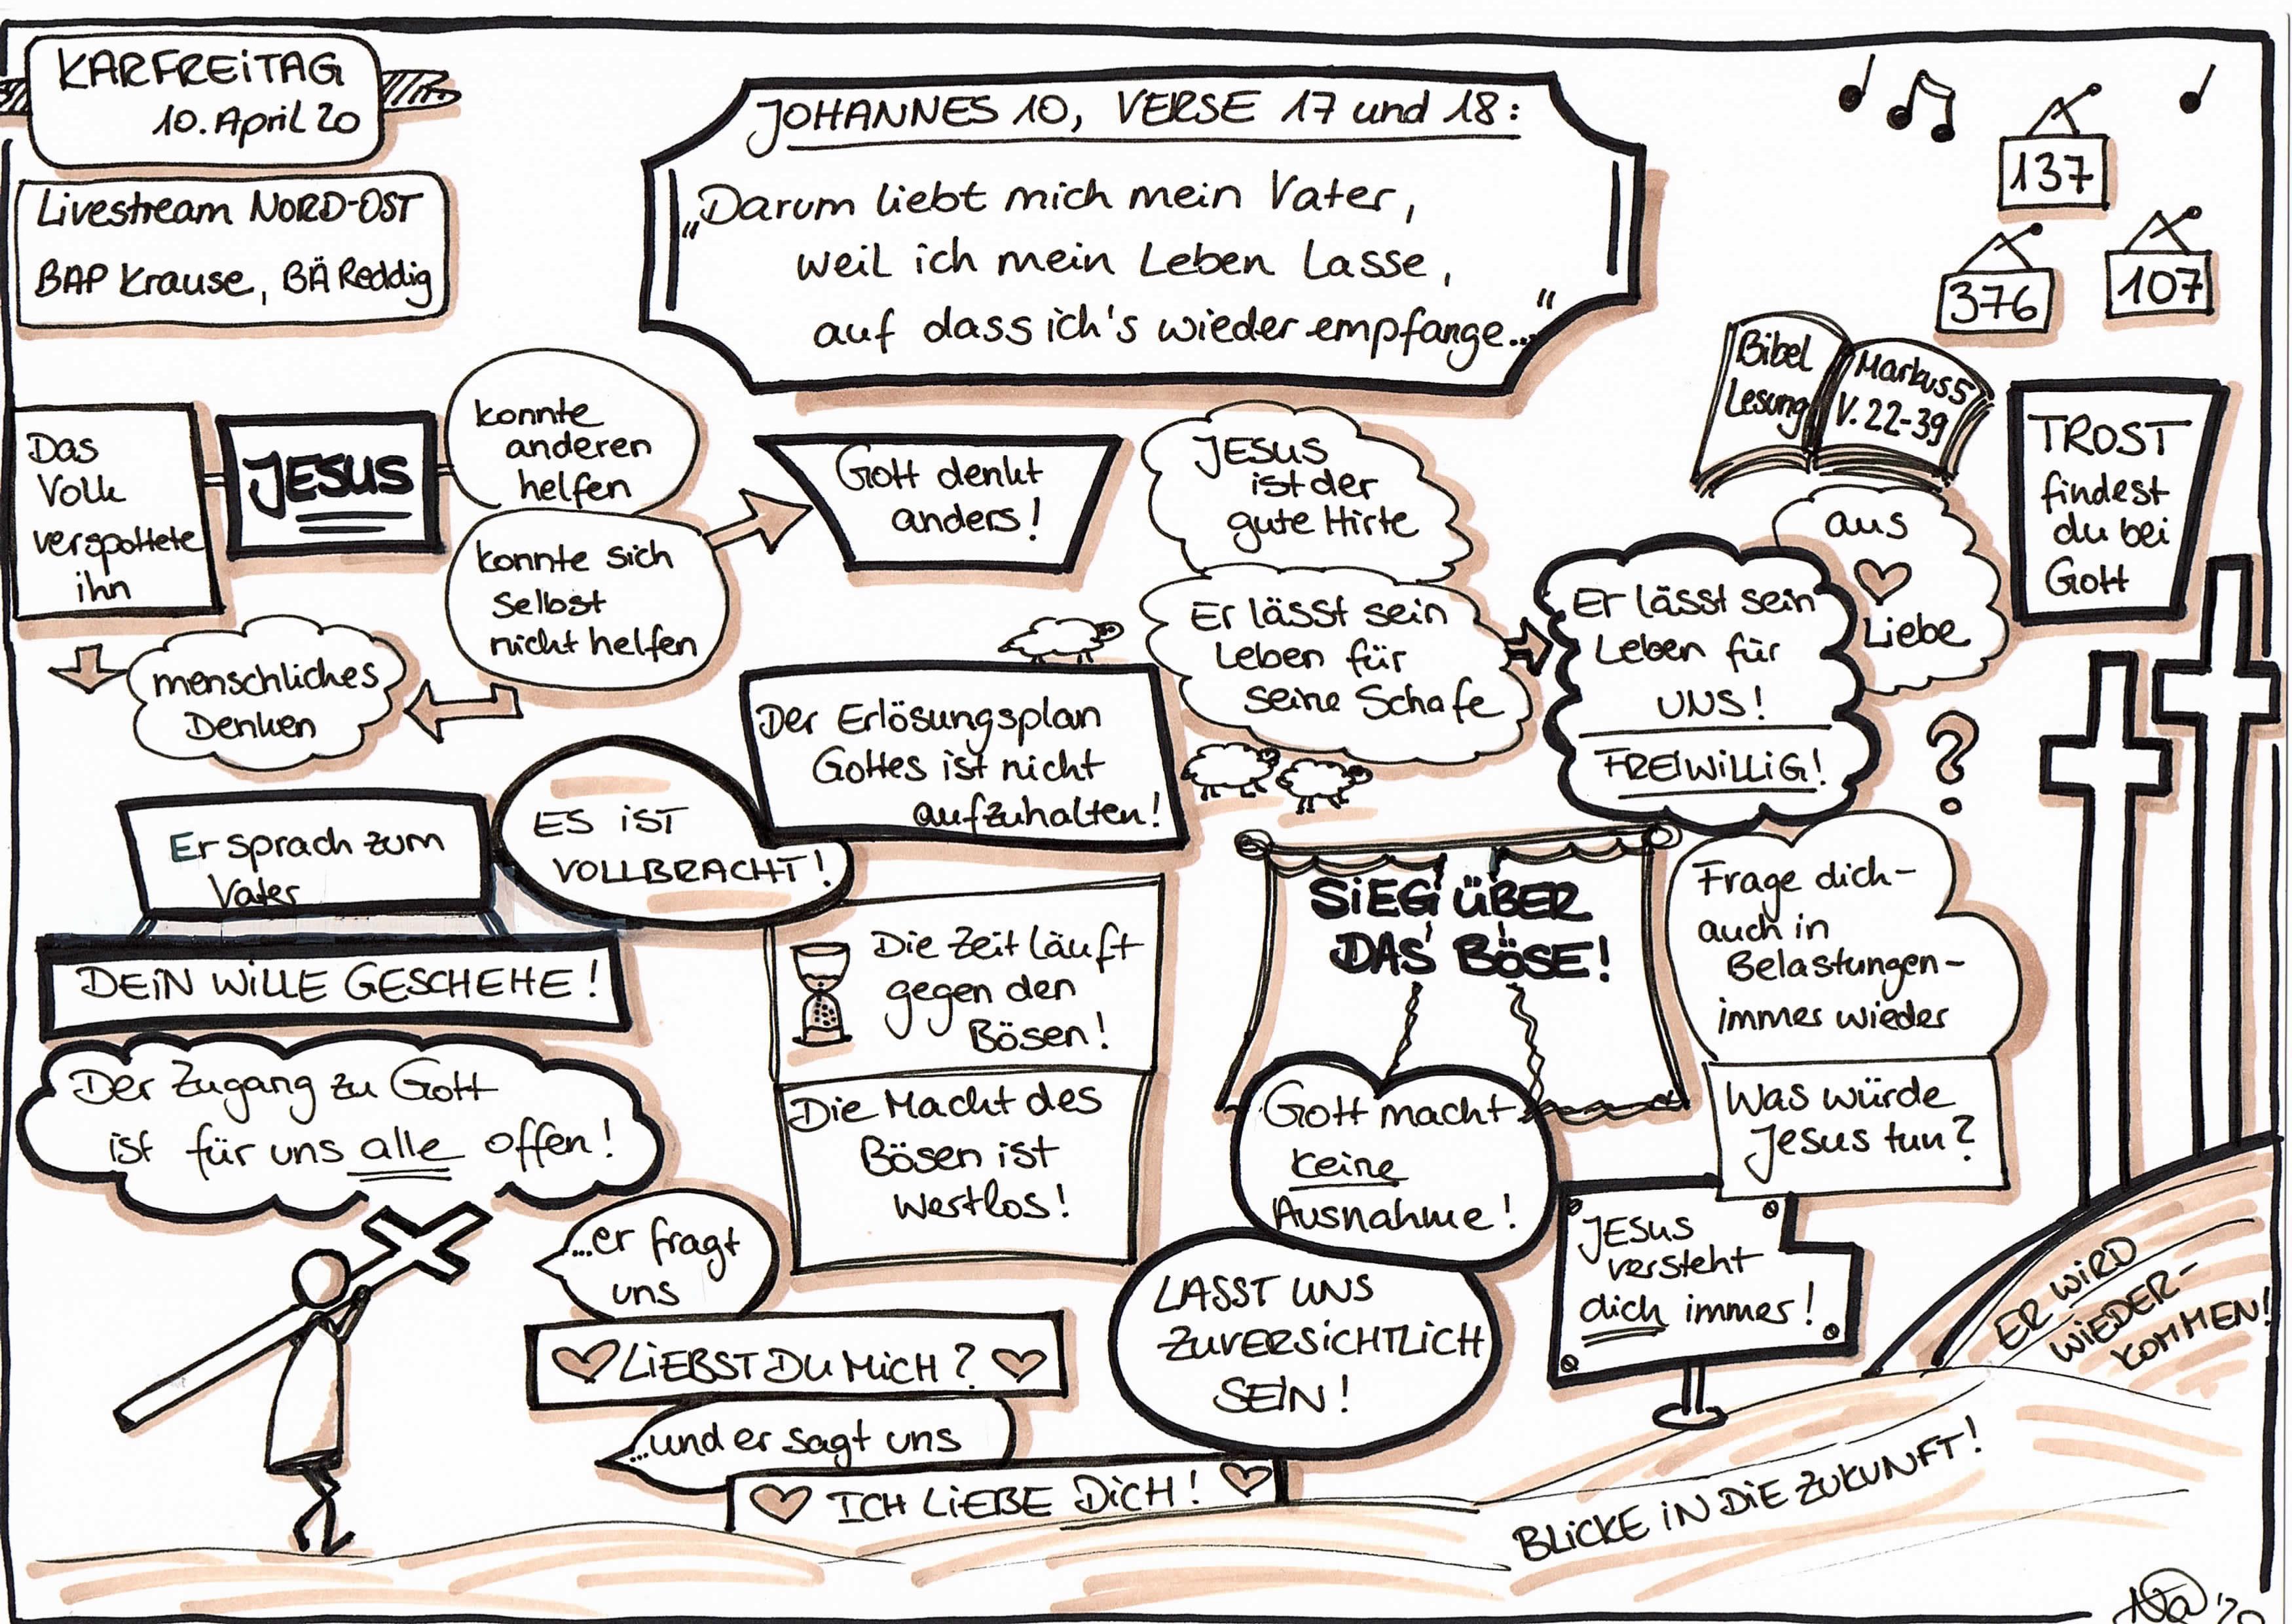 KARFREITAG
10. April 20
Livestream NORD-OST
BAP Krause, BÄ Reddig
JOHANNES 10, VERSE 17 und 18:
„Darum liebt mich mein Vater,
weil ich mein Leben lasse,
auf dass ich's wieder empfange..."
137
376
107
Bibel
Lesung
Markus 5
V. 22-39
TROST
findest
du bei
Gott
Das
Volk
verspottete
ihn
JESUS
konnte
anderen
helfen
konnte sich
selbst
nicht helfen
menschliches
Denken
Gott denkt
anders!
JESUS
ist der
gute Hirte
Er lässt sein
Leben für
seine Schafe
Er lässt sein
Leben für
UNS!
FREIWILLIG!
aus
Liebe
Der Erlösungsplan
Gottes ist nicht
aufzuhalten!
Er sprach zum
Vater
DEIN WILLE GESCHEHE!
ES IST
VOLLBRACHT!
Die Zeit läuft
gegen den
Bösen!
Die Macht des
Bösen ist
wertlos!
SIEG ÜBER
DAS BÖSE!
?
Frage dich-
auch in
Belastungen-
immer wieder
Was würde
Jesus tun?
Der Zugang zu Gott
ist für uns alle offen!
Gott macht
keine
Ausnahme!
JESUS
versteht
dich immer!
...er fragt
uns
LIEBST DU MICH?
...und er sagt uns
ICH LIEBE DICH!
LASST UNS
ZUVERSICHTLICH
SEIN!
ER WIRD
WIEDER-
KOMMEN!
BLICKE IN DIE ZUKUNFT!
'20